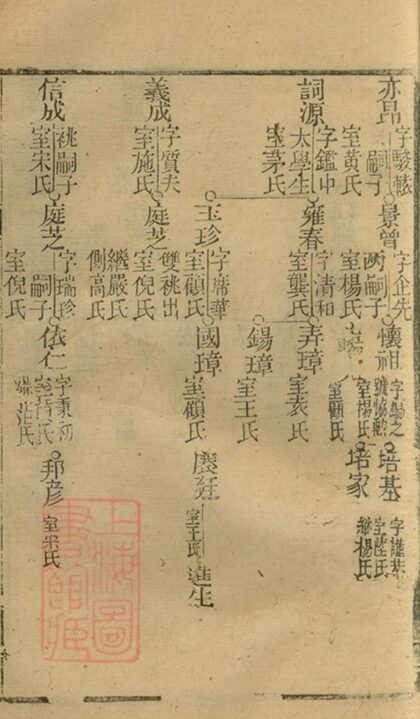 亦昂
字駿軲
嗣子
室黃氏
景曾
字企先
兩嗣子
室楊氏
懷祖
字錫之
號協勲
室楊氏
室顧氏
培基
培家
詞源
字鑑中
太學生
室茅氏
雍春
字清和
室龔氏
弄璋
室袁氏
錫璋
室王氏
玉珍
字席華
室顧氏
國璋
室顧氏
慶廷
室王氏
進生
義成
字質夫
室施氏
庭芝
雙祧出
室倪氏
繼嚴氏
側高氏
信成
祧嗣子
室宋氏
庭芝
字瑞珍
嗣子
室倪氏
依仁
字秉初
邦彦
室宋氏
上海圖
書館藏